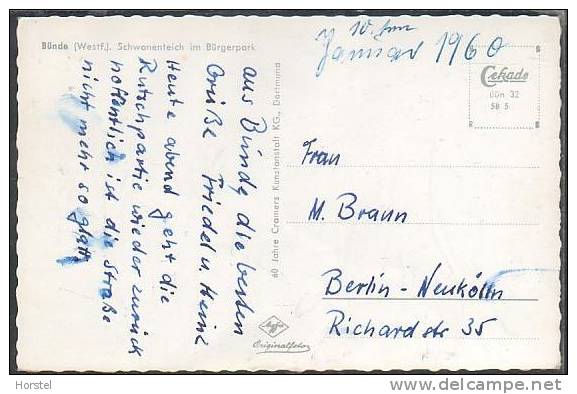 Bünde (Westf.). Schwanenteich im Bürgerpark
10. Jan
Januar 1960
Cekade
Bün 32
5B 5
R S
R S
aus Bünde die besten
Grüße Friedel u. Heinz
Heute abend geht die
Rutschpartie wieder zurück
hoffentlich ist die Straße
nicht mehr so glatt
60 Jahre Cramers Kunstanstalt KG., Dortmund
Frau
M. Braun
Berlin-Neukölln
Richardstr 35
Agfa
Originalfoto
Horstel
delcampe.net